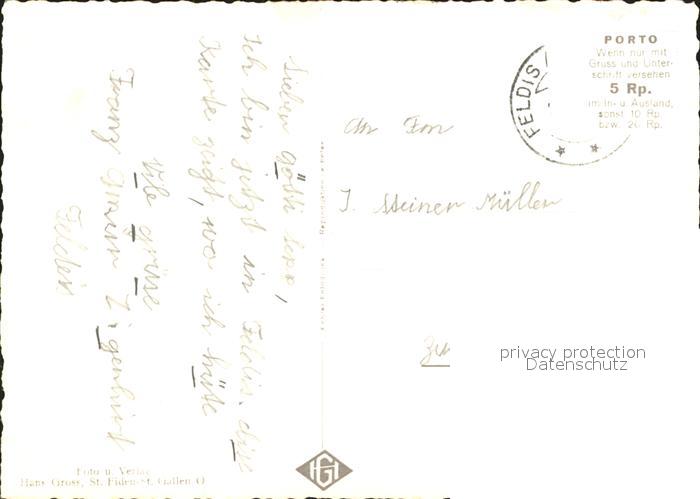 Lieben Götti Sepp,
Ich bin jetzt in Feldis. die
Karte zeigt, wo ich hüte
Vile grüsse
Franz
Feldis
An Fam
J. Steiner Müller
PORTO
Wenn nur mit
Gruss und Unter-
schrift versehen
5 Rp.
im In- u. Ausland,
sonst 10 Rp.
bzw. 20 Rp.
FELDIS
privacy protection
Datenschutz
HG
Foto u. Verlag
Hans Gross, St. Fiden-St. Gallen O